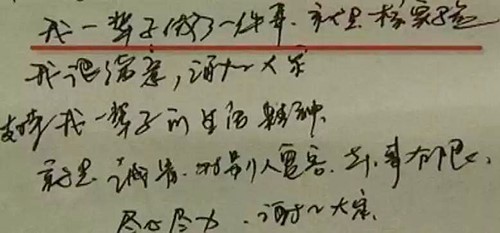 我一辈子做了一件事，就是核实验
我很满意，谢谢大家
支撑我一辈子的生活精神，
就是诚恳．对别人宽容．对事有恒心，
尽心尽力．谢谢大家．